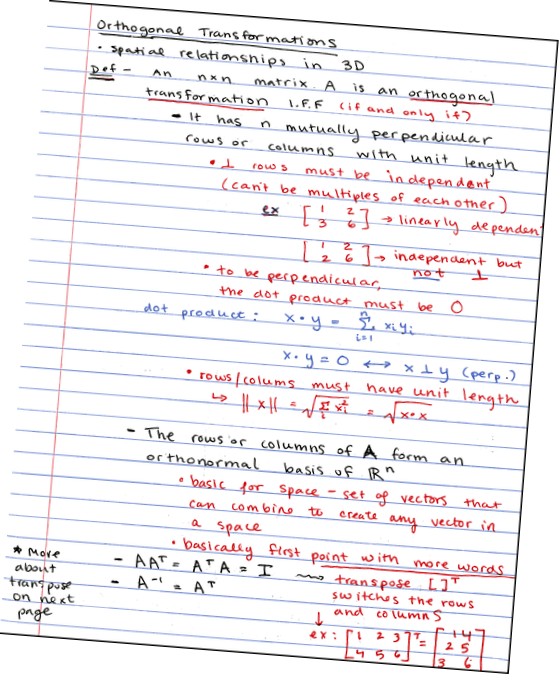 Orthogonal Transformations
• spatial relationships in 3D
Def - An n×n matrix A is an orthogonal
transformation I.F.F (if and only if)
- It has n mutually perpendicular
rows or columns with unit length
• ⊥ rows must be independent
(can't be multiples of each other)
ex [1 2 3 6] → linearly dependen
[1 2 2 6] → independent but
not ⊥
• to be perpendicular,
the dot product must be 0
dot product: x • y = n Σ i=1 xiyi
x • y = 0 ↔ x ⊥ y (perp.)
• rows/colums must have unit length
↳ ||x|| = √Σi xi² = √x•x
- The rows or columns of A form an
orthonormal basis of ℝⁿ
• basic for space - set of vectors that
can combine to create any vector in
a space
• basically first point with more words
- AAᵀ = AᵀA = I ⟿ transpose [ ]ᵀ
- A⁻¹ = Aᵀ switches the rows
and columns
* More
about
transpose
on next
page
↓
ex: [1 2 3 4 5 6]ᵀ = [1 4 2 5 3 6]